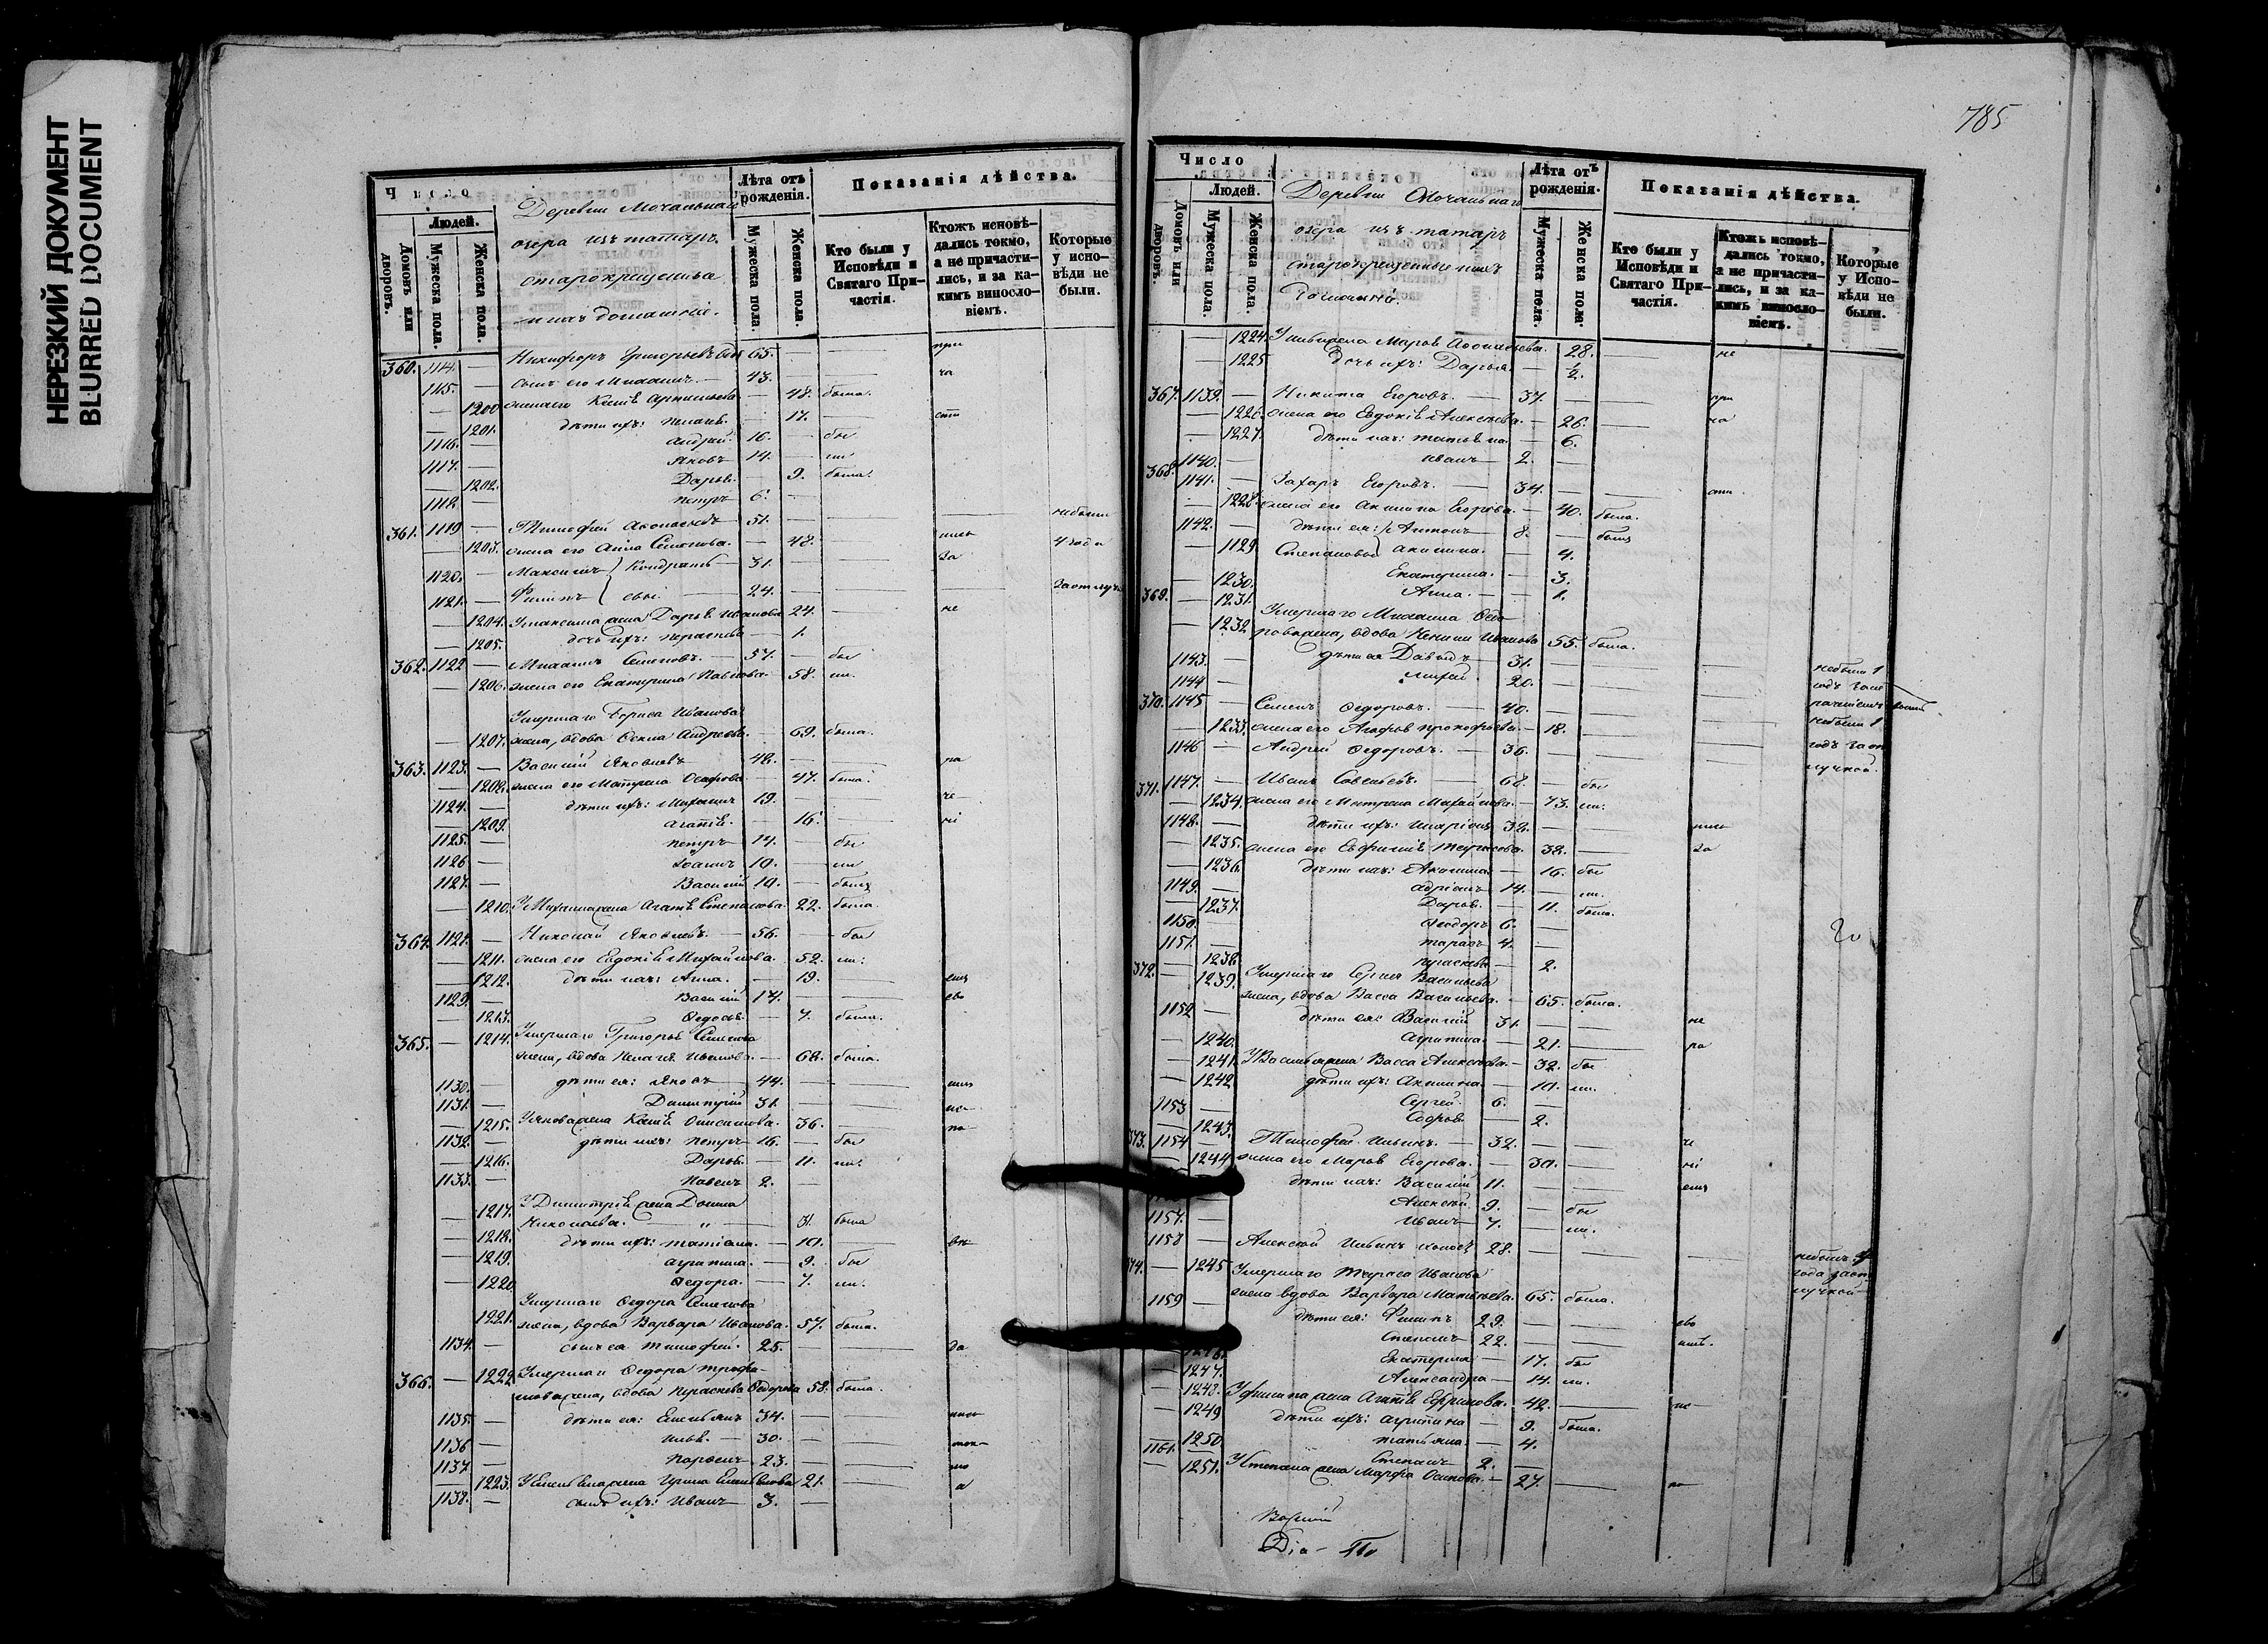 НЕРЕЗКИЙ ДОКУМЕНТ
BLURRED DOCUMENT
Число
Людей.
Домовъ или дворовъ.
Мужеска пола.
Женска пола.
Деревни Мочальнаго
озера изъ татаръ
старокрещеныя
и ихъ домашніе.
Лѣта отъ рожденія.
Мужеска пола.
Женска пола.
Показанія дѣйства.
Кто были у Исповѣди и Святаго Причастія.
Ктожъ исповѣдались токмо, а не причастились, и за какимъ винословіемъ.
Которые у исповѣди не были.
360. 1114. — Никифоръ Григорьевъ 65. — — при
1115. — сынъ его Михаилъ — 43. — — ча
— 1200 жена его Ксенія — 48. была.
— 1201. дѣти ихъ: Пелагея — 17. — сти
1116. — Андрей. 16. — бы
1117. — Яковъ 14. — ли
— 1202. Дарья. — 9. была.
1118 — Петръ 6. —
361. 1119 — Тимофей 51. — — небыли
— 1203. жена его Анна Семенова. — 48. — лись 4 года
1120. — Максимъ } Кондрать 31. — — За
1121. — Филипъ } евы. 24. — — За отлуч
— 1204. У Максима жена Дарья Иванова 24. — не
— 1205. дочь ихъ: Параскева — 1.
362. 1122 — Михаилъ Семеновъ. — 57. — бы
— 1206. жена его Екатерина Павлова. 58. ли.
Умершаго Бориса Иванова
— 1207. жена, вдова Фекла Андреева. — 69. была.
363. 1123. — Василій Яковлевъ 48. — — ра
— 1208. жена его Матрена Осифова — 47. была.
1124. — дѣти ихъ: Михаилъ 19. — — че
— 1209. Агафія. — 16. — ні
1125. — Петръ 14. — бы
1126 — Іоаннъ 10. — ли
1127. — Василій 10. — былъ
— 1210. У Михаила жена Агафія Степанова. 22. была.
364. 1128. — Николай Яковлевъ. — 56. — бы
— 1211. жена его Евдокія Михайлова. 52. ли.
— 1212. дѣти ихъ: Анна. — 19. — емъ
1129. — Василій 17. — —
— 1213. Федосья — 7. была.
365. — 1214. Умершаго Григорья Семенова
жена, вдова Пелагея Иванова — 68. была.
1130. — дѣти ея: Яковъ 44. — —
1131. — Димитрій 31. — —
— 1215. У Якова жена Ксенія Онисимова. 36. —
1132. — дѣти ихъ: Петръ 16. — бы
— 1216. Дарья — 11. ли.
1133. — Павелъ 2. —
— 1217. У Димитрія жена Домна
Николаева. — была
— 1218. дѣти ихъ: Татіана. — 10. —
— 1219. Агрипина. — 9. бы
— 1220 Федора. — 7. ли.
Умершаго Федора Семенова
— 1221. жена, вдова Варвара Иванова. 57. была.
1134. — сынъ ея Тимофей. 25. — —
366. — 1222. Умершаго Федора Трофи
мова жена, вдова Параскева Федорова 58. была.
1135. — дѣти ея: Емельянъ 34. — —
1136 — Илья. — 30. — —
1137 — Парфенъ 23. — —
— 1223. У Емельяна жена Ирина 21. —
1138. — сынъ ихъ: Иванъ 3. —
785
Число
Людей.
Домовъ или дворовъ.
Мужеска пола.
Женска пола.
Деревни Мочальнаго
озера изъ татаръ
старокрещенные и ихъ
домашнія.
Лѣта отъ рожденія.
Мужеска пола.
Женска пола.
Показанія дѣйства.
Кто были у Исповѣди и Святаго Причастія.
Ктожъ исповѣдались токмо, а не причастились, и за какимъ винословіемъ.
Которые у Исповѣди не были.
— 1224. жена Марья 28. — не
— 1225 дочь ихъ: Дарья. — ½.
367. 1139. — Никита Егоровъ. — 37. — — при
— 1226. жена его Евдокія Алексеева. — 26. — ча
— 1227. дѣти ихъ: Татьяна — 6.
1140. — Иванъ 2. —
368. 1141. — Захаръ Егоровъ. — 34. — — сти
— 1228. жена его Акилина Егорова. — 40. была.
1142. — дѣти ея: Антонъ 8. — былъ
— 1229 Степановы } Акилина. — 4.
— 1230. Екатерина. — 3.
369. — 1231. Анна. — 1.
— 1232 Умершаго Михаила Федо
рова жена, вдова Иванова 55. была.
1143. — дѣти ея Давыдъ 31. — — небылъ 1
1144 — 20. — годъ
370. 1145 — Семенъ Федоровъ. — 40. —
— 1233. жена его Агафья Прокофьева — 18. — небыли 1
1146 — Андрей Федоровъ. — 36. — годъ за от
лучкой.
371. 1147. — Иванъ Савельевъ. — 68. — бы
— 1234. жена его Матрена Михайлова. — 73. ли.
1148. — дѣти ихъ: Иларіонъ 38. — — лись
— 1235. жена его Евфимія Тарасова. 38. — за
— 1236. дѣти ихъ: Акилина — 16. бы
1149. — Адріанъ 14. — ли.
— 1237. Дарья. — 11. была.
1150. — Феодоръ 6. —
1151. — Тарасъ 4. —
— 1238 Параскева — 2.
372. — 1239. Умершаго Сергея Васильева
жена, вдова Васса Васильева. — 65. была.
1152 — дѣти ея: Василій 31. — — не
— 1240. Агрипина. — 21. — ра
— 1241. У Василья жена Васса Алексеева. — 32. бы
— 1242. дѣти ихъ: Акилина — 10. ли.
1153 — Сергей 6. —
— 1243. Софья — 2.
373. 1154 — Тимофей Ильинъ. — 32. — че
— 1244 жена его Марья Егорова. — 30. — ні
дѣти ихъ: Василій 11. — емъ
Алексей 9. — бы
1157. — Иванъ 7. — ли.
1158 — Алексей Ильинъ холостъ 28. — — небылъ
года за от
лучкой
374. — 1245 Умершаго Тараса Иванова
жена вдова Варвара 65. была.
1159 — дѣти ея: Филипъ 29. — —
Степанъ 22. — —
Екатерина — 17. бы
— 1247. Александра — 14. ли.
— 1248. У Филипа жена Агафія Ефимова. 42. —
— 1249 дѣти ихъ: Агрипина — 9. была.
— 1250 Татьяна — 4.
1161. — Степанъ 2. —
— 1251. У Степана жена Марфа Осипова. — 27. —
Василій
Діа –